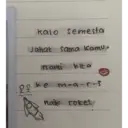 kalo semesta
Jahat sama kamu,
nanti kita
ke m-a-r-s
naik roket